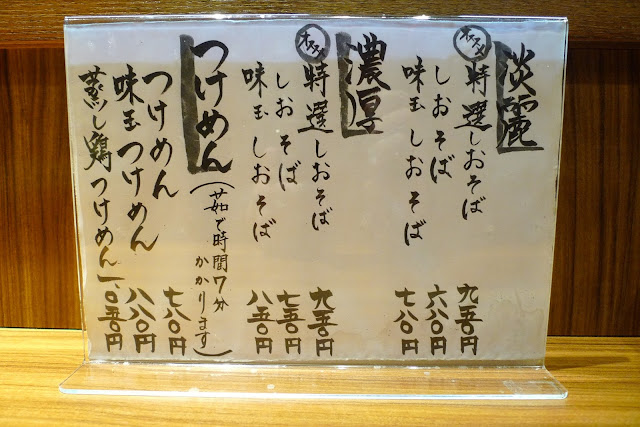 淡麗
オススメ
特選しおそば 九五〇円
しおそば 六八〇円
味玉しおそば 七八〇円
濃厚
オススメ
特選しおそば 九五〇円
しおそば 七五〇円
味玉しおそば 八五〇円
つけめん(茹で時間7分かかります)
つけめん 七八〇円
味玉つけめん 八八〇円
蒸し鶏つけめん 一、〇五〇円